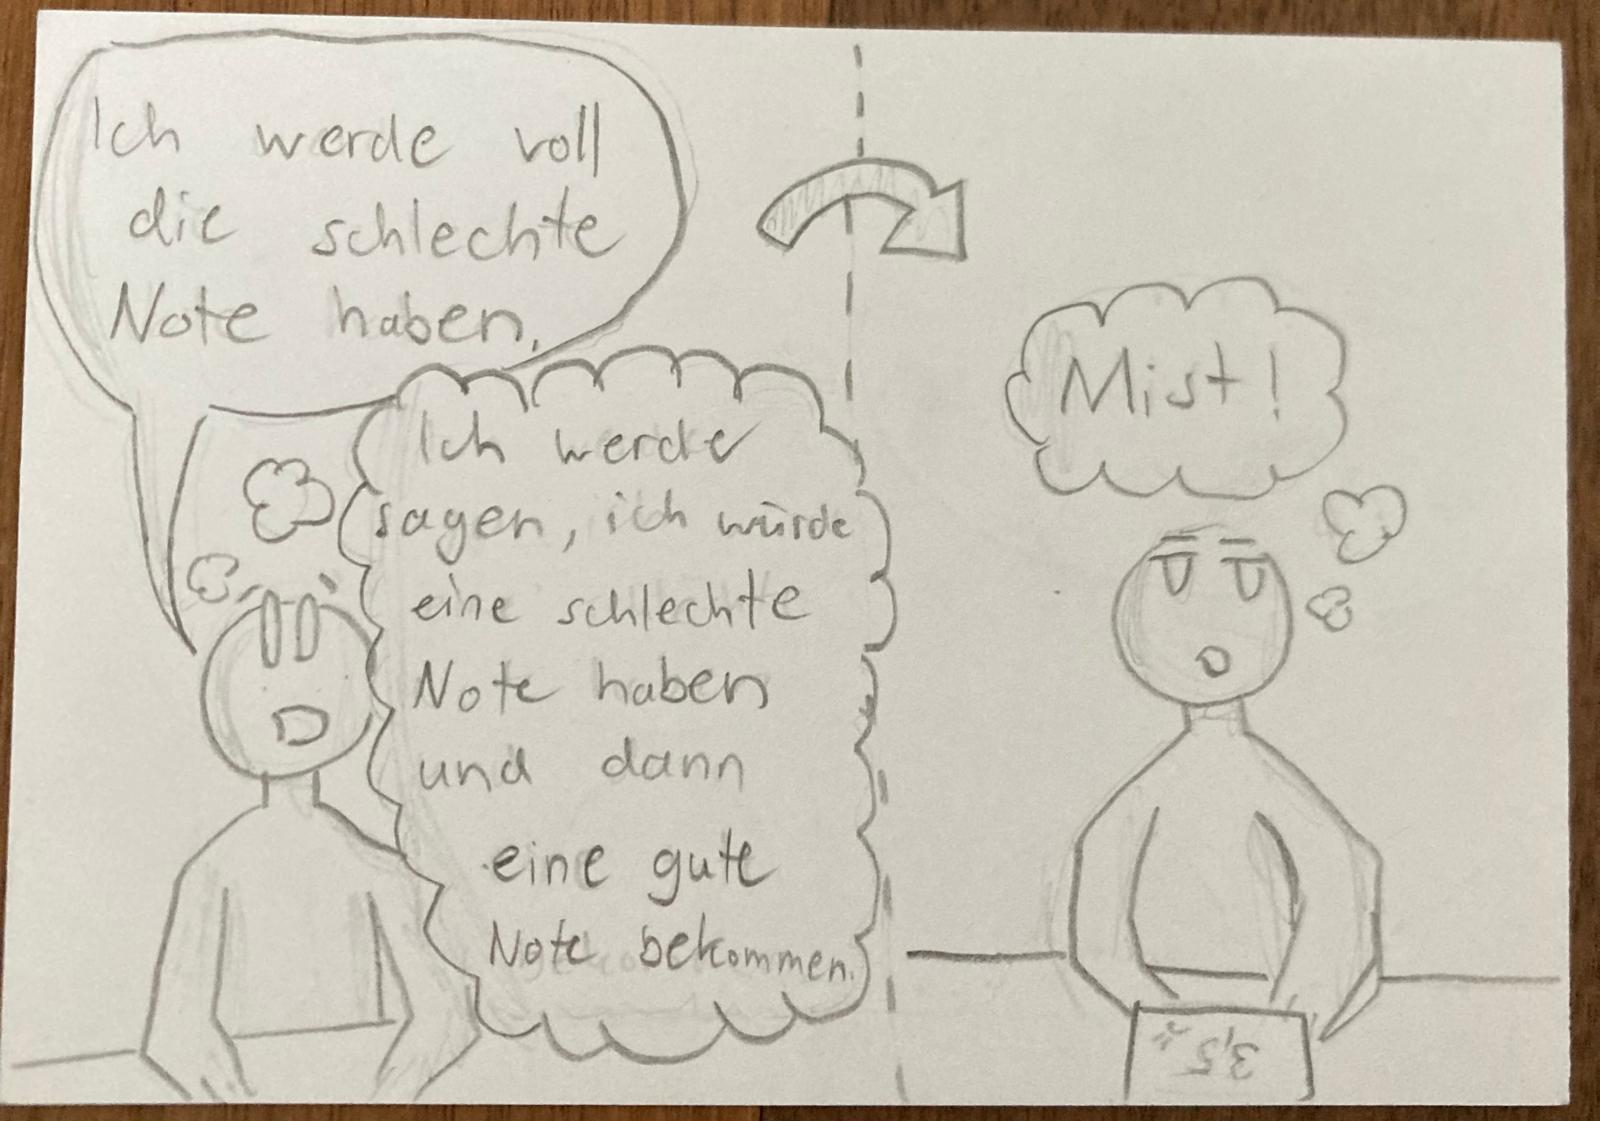 Ich werde voll
die schlechte
Note haben.
Ich werde
sagen, ich würde
eine schlechte
Note haben
und dann
eine gute
Note bekommen.
Mist!
3,5